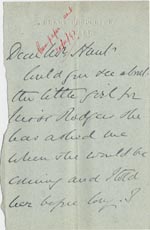 Dear Mr Hunt
Could you see about
the little girl for
Mrs Rodger she
has asked me
when she would be
coming and I told
her before long. I